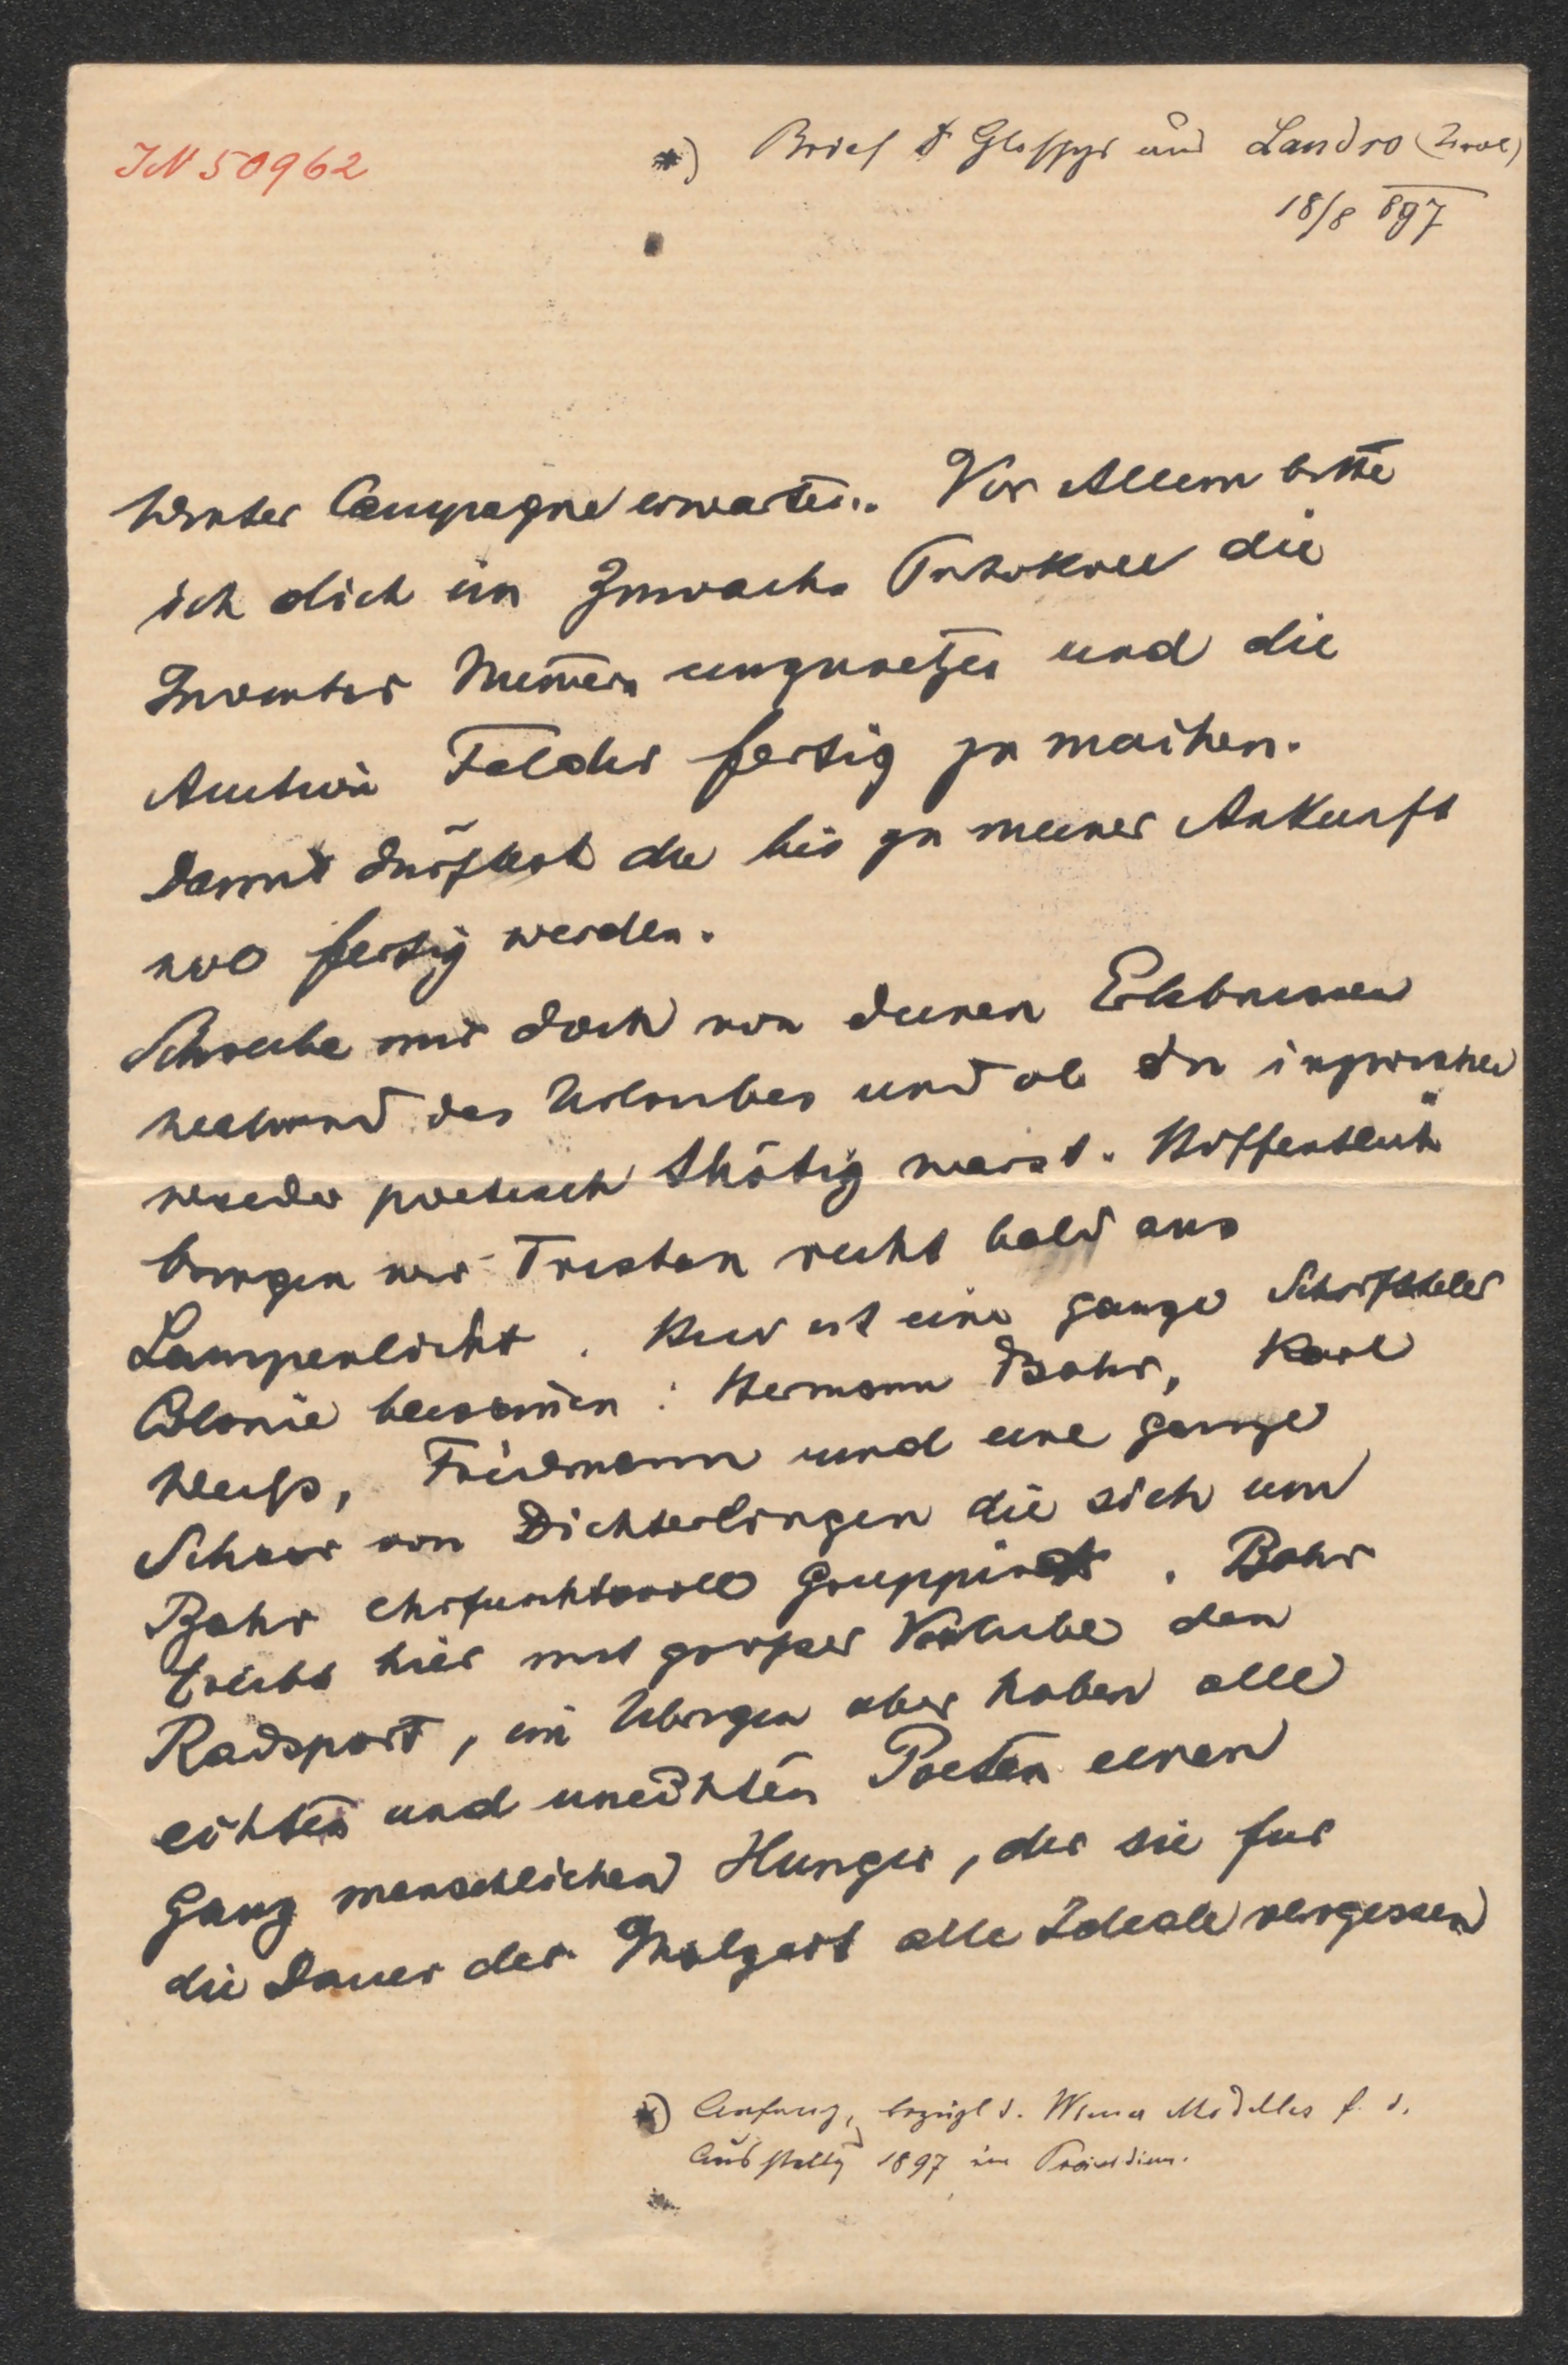 IN 50962
*) Brief D Glossys aus Landro (Tirol)
18/8 897
Winter Campagne erwarten. Vor Allem bitte
ich dich im Zuwachs Protokoll die
Inventar Num̄ern einzusetzen und die
Felder fertig zu machen.
Damit dürftest du bis zu meiner Ankunft
wol fertig werden.
Schreibe mir doch von deinen Erlebnissen
während des Urlaubes und ob du inzwischen
wieder poetisch thätig warst. Hoffentlich
bringen wir Tristan recht bald ans
Lampenlicht. Hier ist eine ganze Schriftsteller
Colonie beisam̄en: Hermann Bahr, Karl
Weiß, Friedmann und eine ganze
Schaar von Dichterlingen die sich um
Bahr ehrfurchtsvoll gruppirt. Bahr
treibt hier mit großer Vorliebe den
Radsport, im Übrigen aber haben alle
echten und unechten Poeten einen
ganz menschlichen Hunger, der sie für
die Dauer der Malzeit alle Ideale vergessen
*) Anfang, bezügl d. Wiener Modelles f. d.
Ausstellg 1897 im